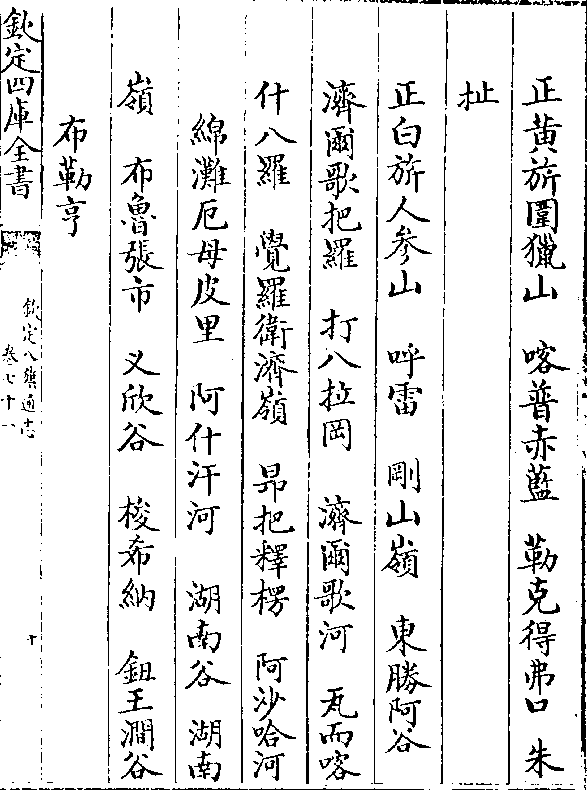 正黄旂圍獵山　喀普赤藍　勒克得弗口　朱
扯
正白旂人參山　呼雷　剛山嶺　東勝阿谷
濟爾歌把羅　打八拉岡　濟爾歌河　瓦而喀
什八羅　覺羅衛濟嶺　昂把釋楞　阿沙哈河
綿灘厄母皮里　阿什汗河　湖南谷　湖南
嶺　布魯張市　义欣谷　梭希納　鈕王澗谷
布勒亨
欽定四庫全書
欽定八旗通志
卷七十一
十